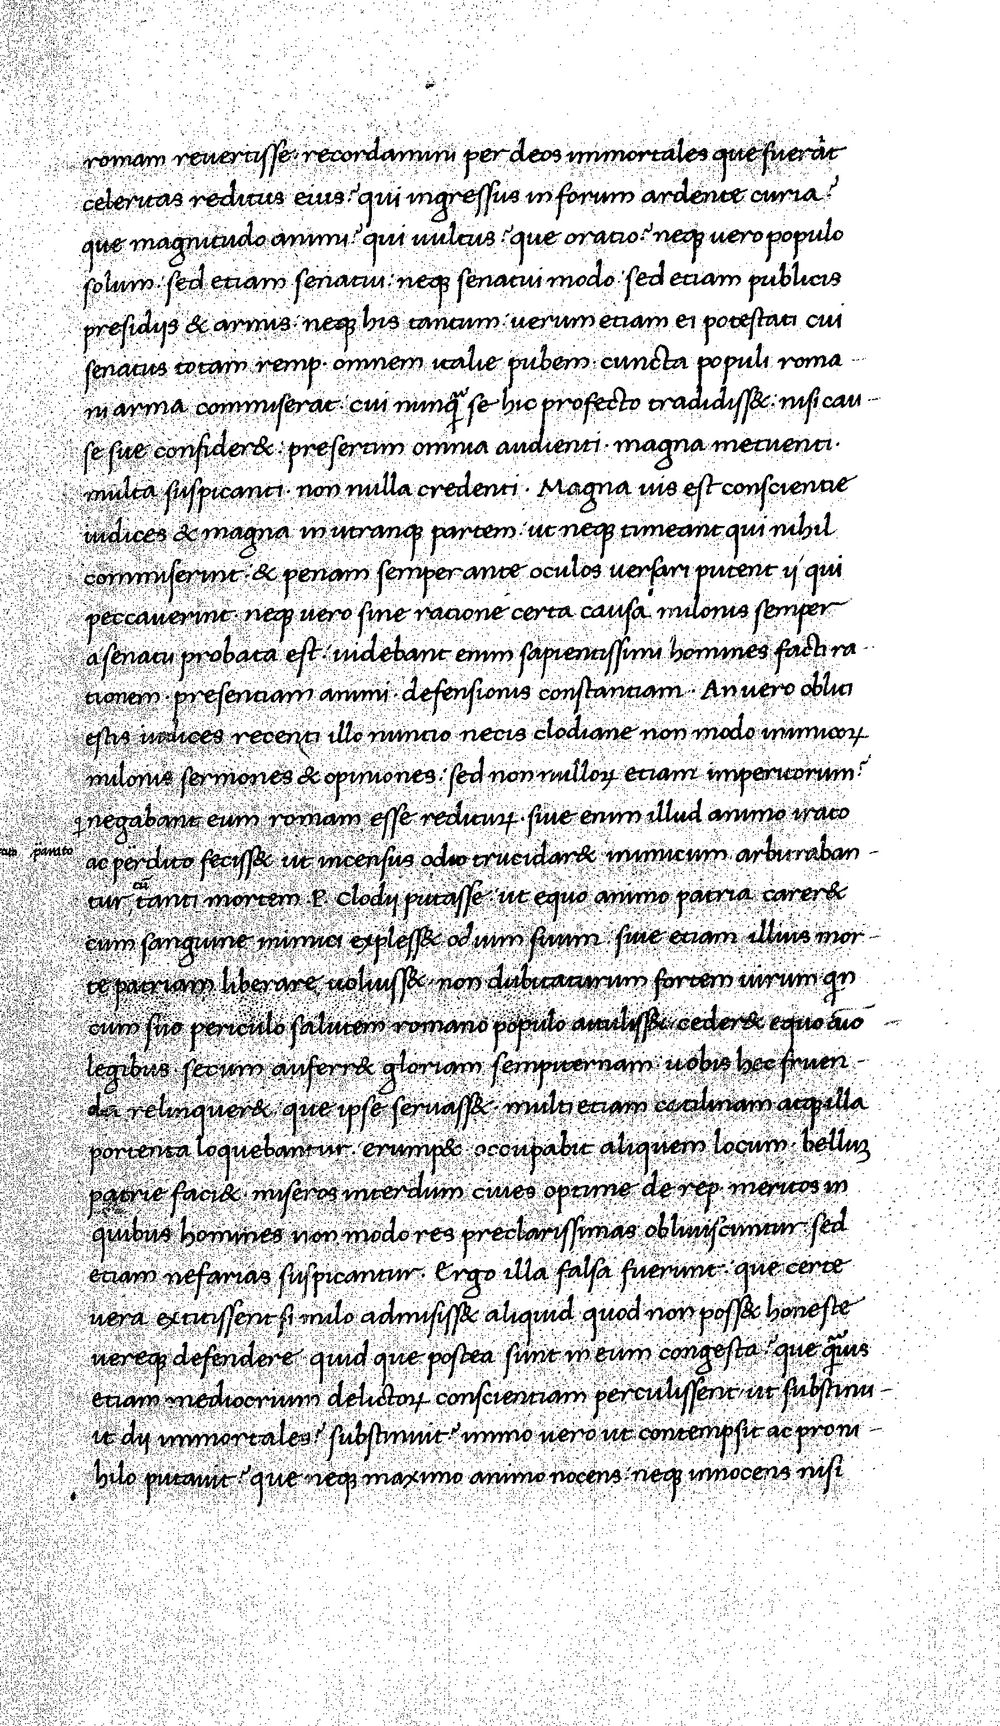 romam revertisse: recordamini per deos immortales que fuerit
celeritas reditus eius? qui ingressus in forum ardente curia?
que magnitudo animi? qui uultus? que oratio? neqꝫ vero populo
solum: sed etiam senatui: neqꝫ senatui modo: sed etiam publicis
presidijs & armis: neqꝫ his tantum: verum etiam ei potestati cui
senatus totam remp. omnem italie pubem. cuncta populi roma-
ni arma commiserat: cui nunqᷓ se hic profecto tradidiss&: nisi cau-
se sue confider&: presertim omnia audienti. magna metuenti.
multa suspicanti. non nulla credenti. Magna uis est conscientie
iudices & magna in utranqꝫ partem: ut neqꝫ timeant qui nihil
commiserint. & penam semper ante oculos versari putent ij qui
peccaverint. neqꝫ vero sine ratione certa causa milonis semper
a senatu probata est: uidebant enim sapientissimi homines facti ra-
tionem. presentiam animi. defensionis constantiam. An uero obliti
estis iudices recenti illo nuncio necis clodiane non modo inimicoꝝ
milonis sermones & opiniones: sed non nulloꝝ etiam imperitorum?
negabant eum romam esse redituꝝ. siue enim illud animo irato
parato
ac perdito feciss& ut incensus odio trucidar& inimicum arbitraban-
cū
tur tanti mortem P. Clodij putasse: ut equo animo patria carer&
cum sanguine inimici expless& odium suum. siue etiam illius mor-
te patriam liberare uoluiss& non dubitaturum fortem uirum qn
cum suo periculo salutem romano populo attuliss& ceder& equo aīo
legibus. secum auferr& gloriam sempiternam: uobis hec fruen-
da relinquer& que ipse seruass&. multi etiam catilinam atqꝫ illa
portenta loquebantur. erump& occupabit aliquem locum. belluꝫ
patrie faci&. miseros interdum ciues optime de rep. meritos in
quibus homines non modo res preclarissimas obliuiscuntur: sed
etiam nefarias suspicantur. Ergo illa falsa fuerunt: que certe
vera extitissent si milo admisiss& aliquid quod non poss& honeste
vereqꝫ defendere quid que postea sunt in eum congesta? que qᷓuis
etiam mediocrium delictoꝝ conscientiam perculissent: ut substinu-
it dij immortales? substinuit? immo uero ut contempsit ac pro ni-
hilo putauit? que neqꝫ maximo animo nocens: neqꝫ innocens nisi